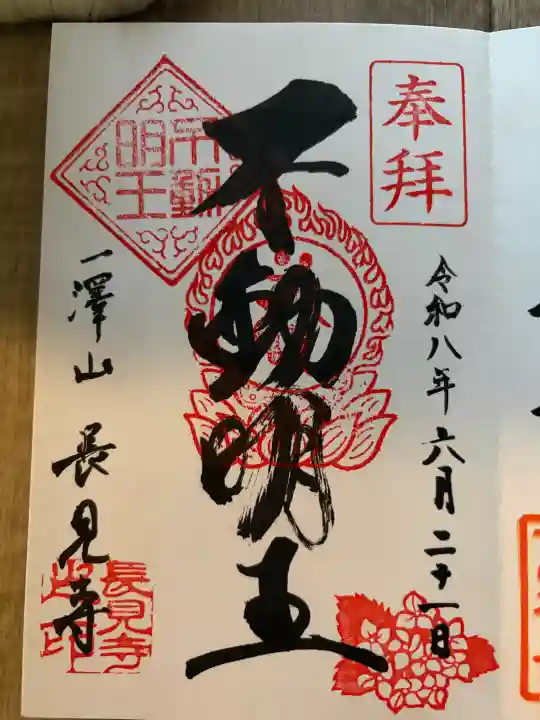 奉拝
令和八年六月二十一日
不動明王
不動明王
一澤山 長見寺
長見寺